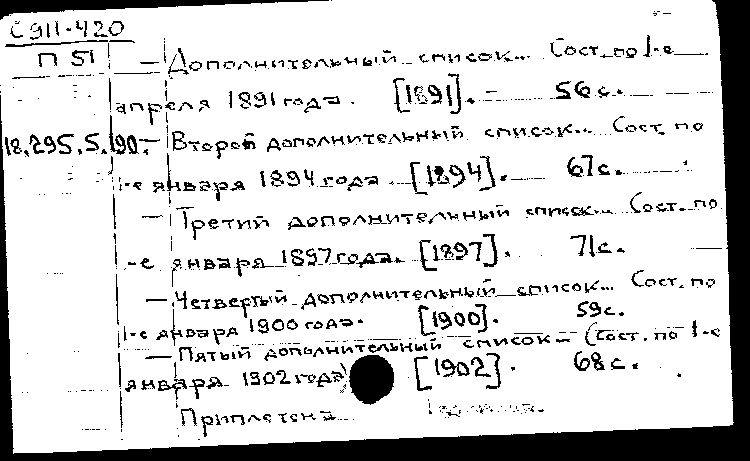 С 911-420
П 51
— Дополнительный список... Сост. по 1-е
апреля 1891 года. [1891]. — 56 с.
18.295.5.190. — Второй дополнительный список... Сост. по
1-е января 1894 года. [1894]. 67 с.
— Третий дополнительный список... Сост. по
1-е января 1897 года. [1897]. 71 с.
— Четвертый дополнительный список... Сост. по
1-е января 1900 года. [1900]. 59 с.
— Пятый дополнительный список... (Сост. по 1-е
января 1902 года) [1902]. 68 с.
Приплетена